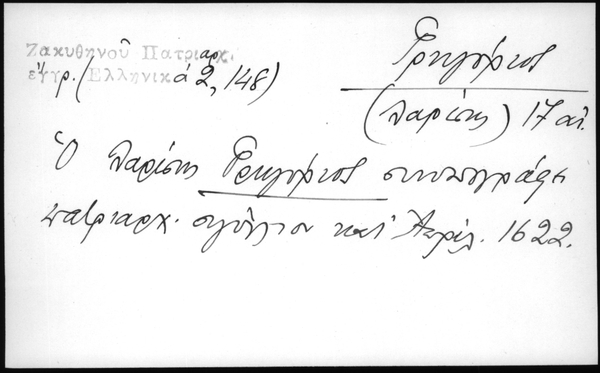 Ζακυθηνοῦ Πατριαρχ.
ἔγγρ. (Ἑλληνικά 2, 148)
Γρηγόριος
(Λαρίσης) 17 αἰ.
Ὁ Λαρίσης Γρηγόριος συνυπογράφει
πατριαρχ. σιγίλλιον κατ' Ἀπρίλ. 1622.